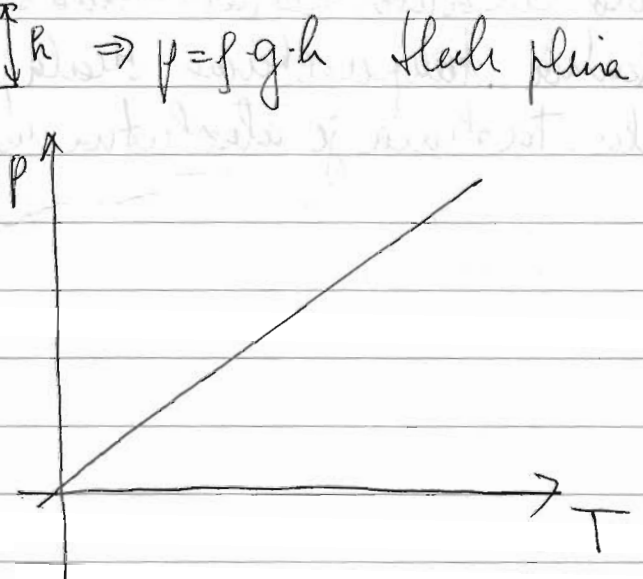 h ⇒ p=ρ·g·h tlak plina
p
T